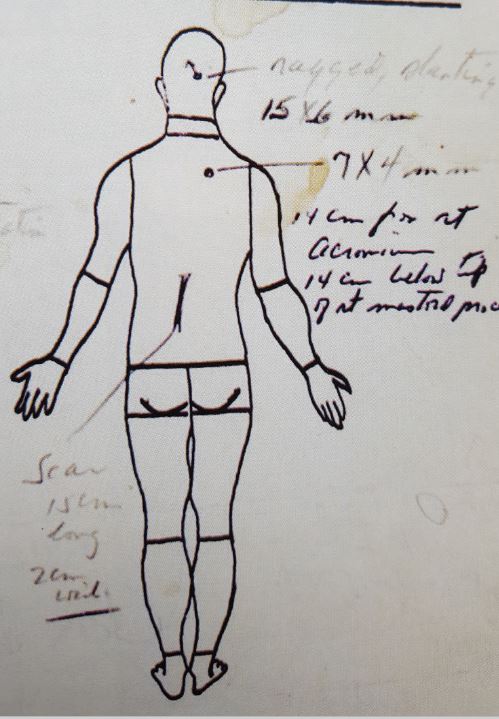 ragged, slanting
15 X 6 mm
7 X 4 mm
14 cm from rt
acromion
14 cm below tip
of rt mastoid proc
Scar
15 cm
long
2 cm